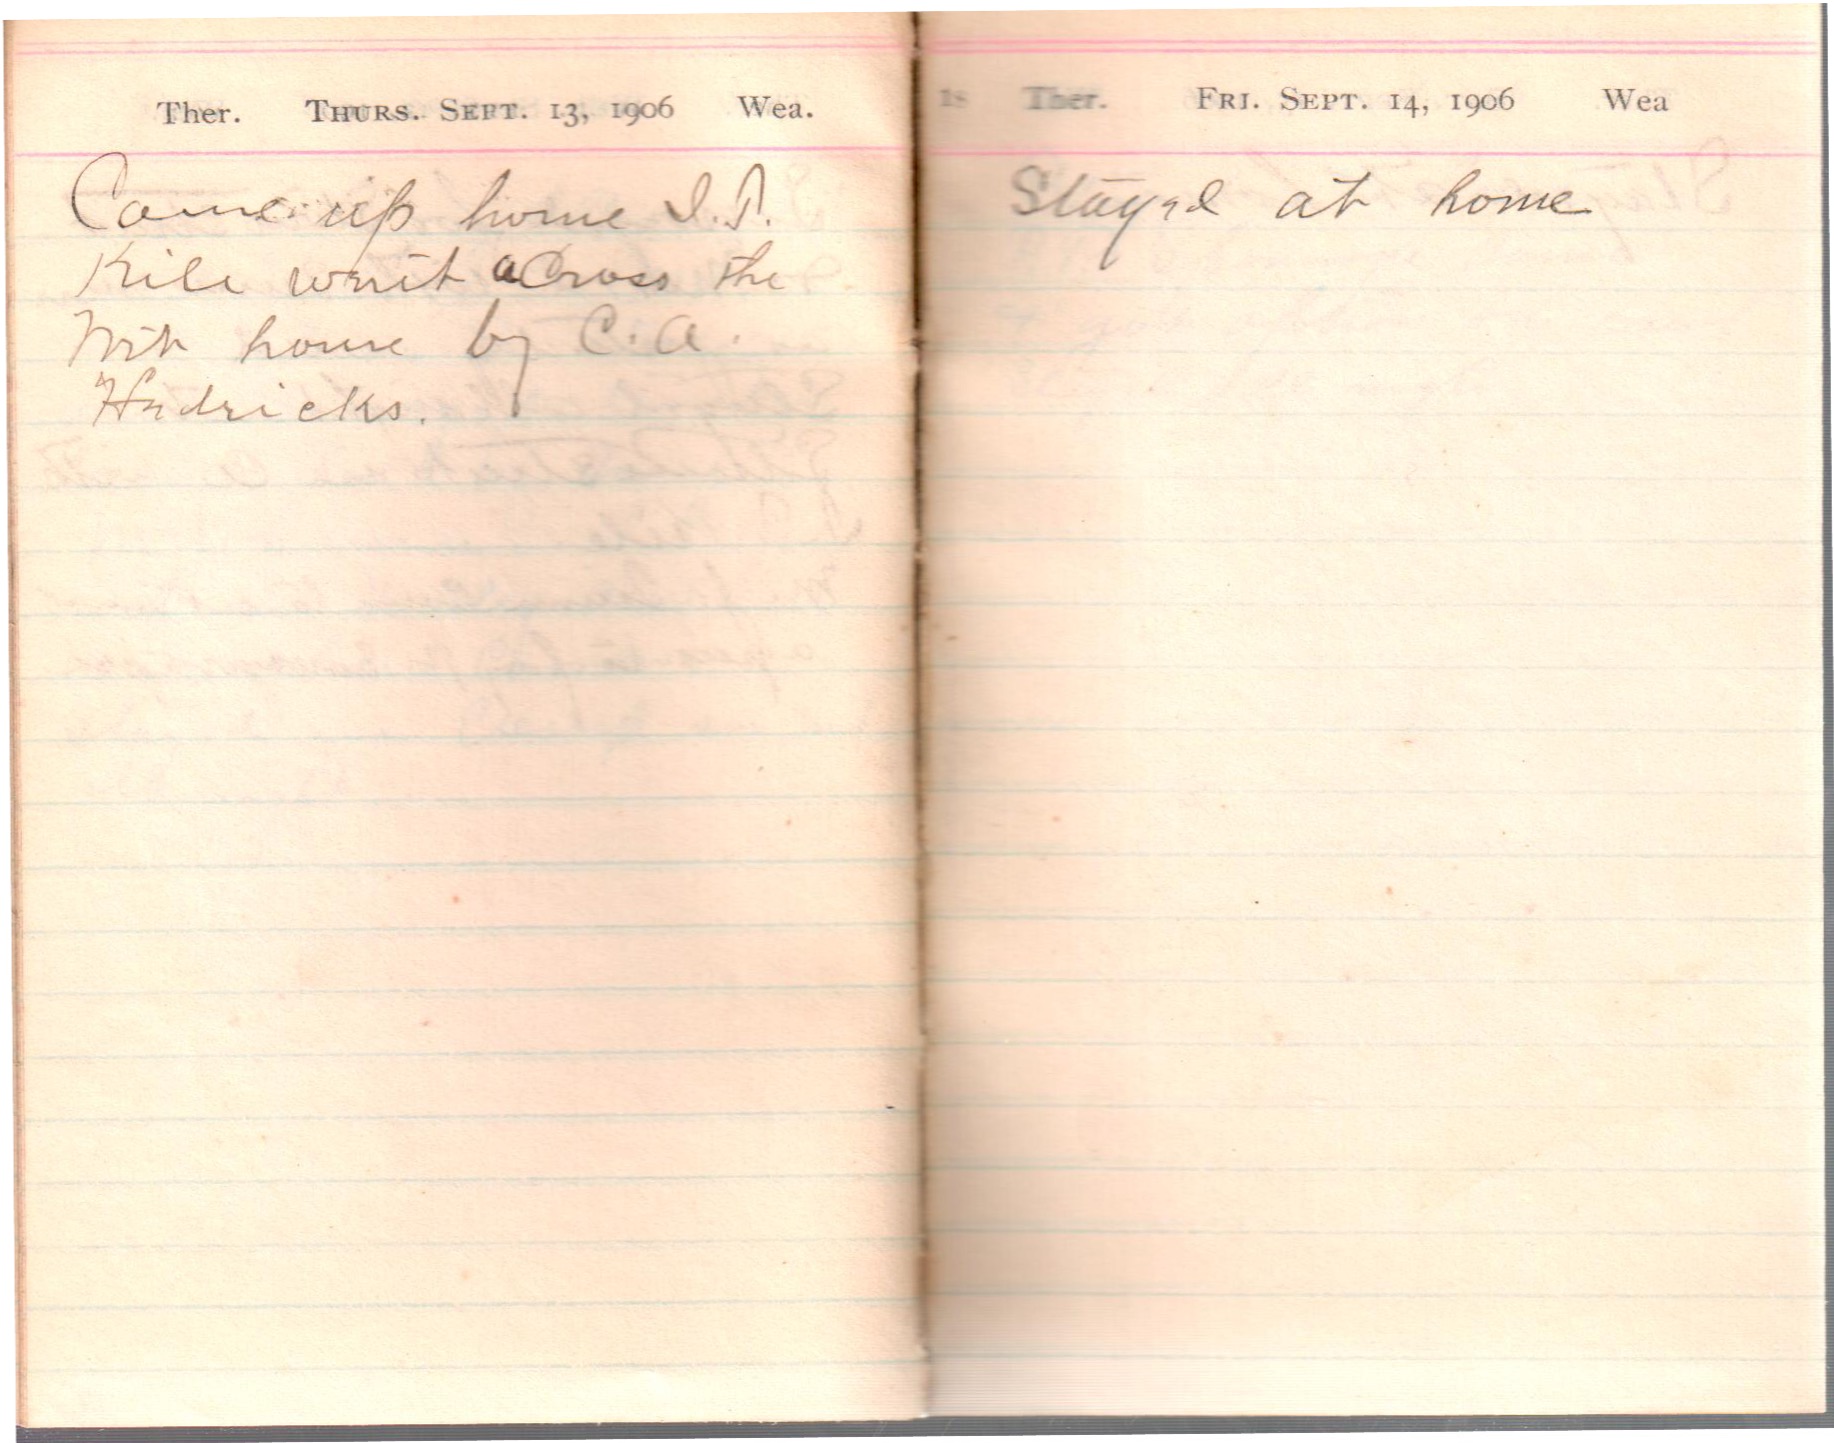 Ther. THURS. SEPT. 13, 1906 Wea.
Came up home I. P.
Kile went across the
house by C. A.
Hedricks.
Ther. FRI. SEPT. 14, 1906 Wea
Stayed at home